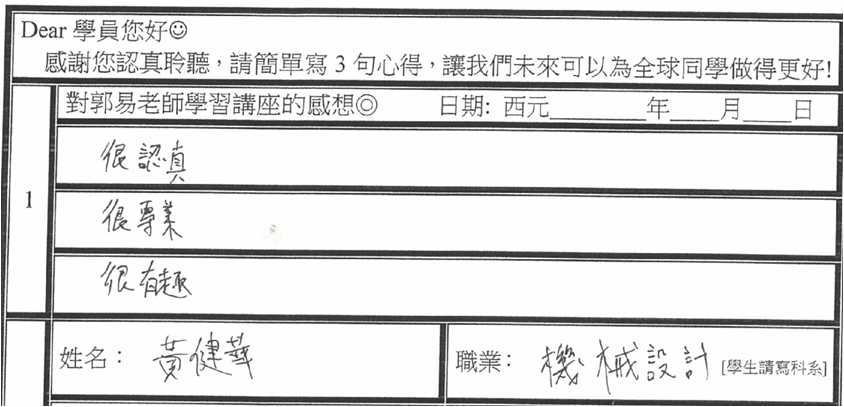 Dear 學員您好☺
感謝您認真聆聽，請簡單寫 3 句心得，讓我們未來可以為全球同學做得更好!
1
對郭易老師學習講座的感想◎ 日期: 西元________年____月____日
很認真
很專業
很有趣
姓名： 黃健華
職業： 機械設計 [學生請寫科系]